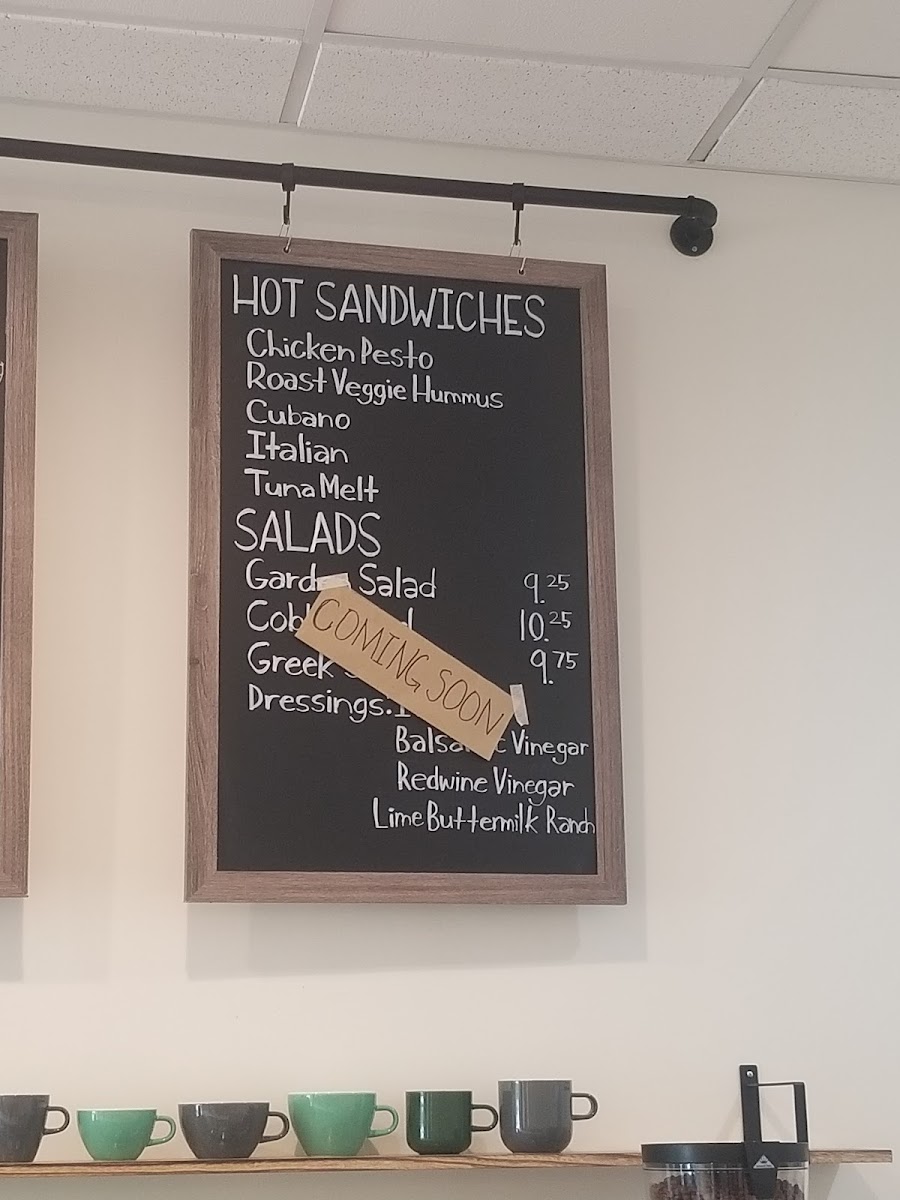 HOT SANDWICHES
Chicken Pesto
Roast Veggie Hummus
Cubano
Italian
Tuna Melt
SALADS
Salad 9.25
10.25
Greek 9.75
Dressings:
COMING SOON
Vinegar
Redwine Vinegar
Lime Buttermilk Ranch